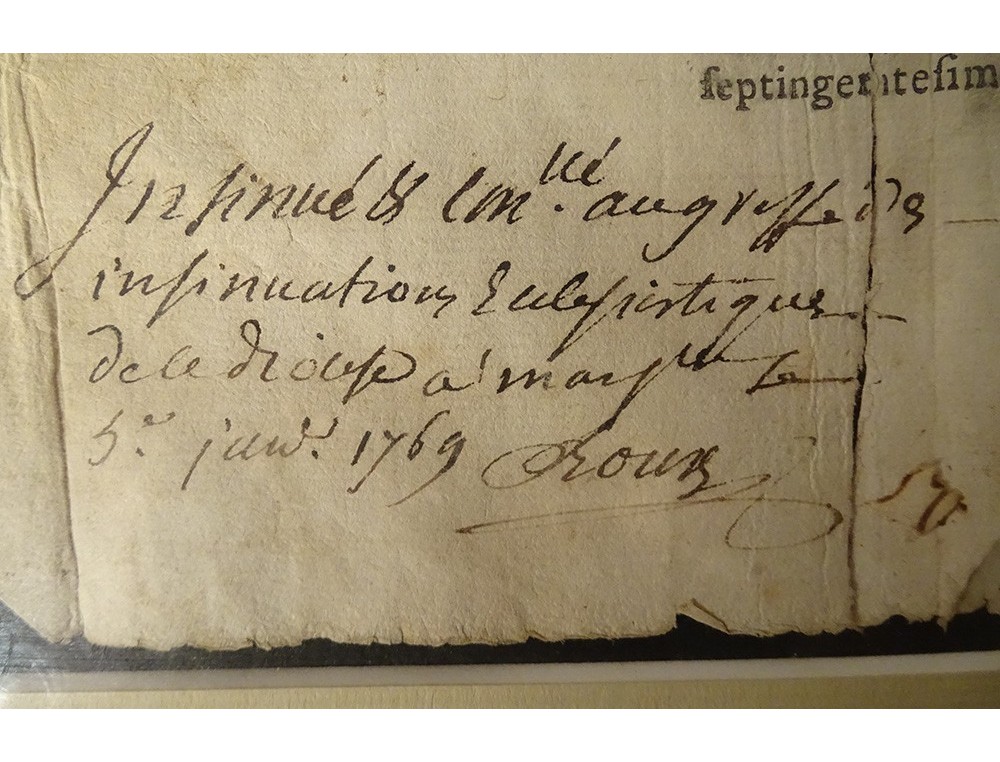 ſeptingenteſim
Insinué & Con.llé au greffe des
insinuations Eclesiastiques
de ce diocese a marslle le
5.e janv.r 1769 Roux